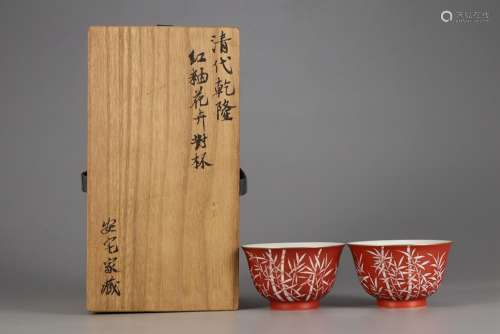 清代乾隆
紅釉花卉對杯
安宅家藏